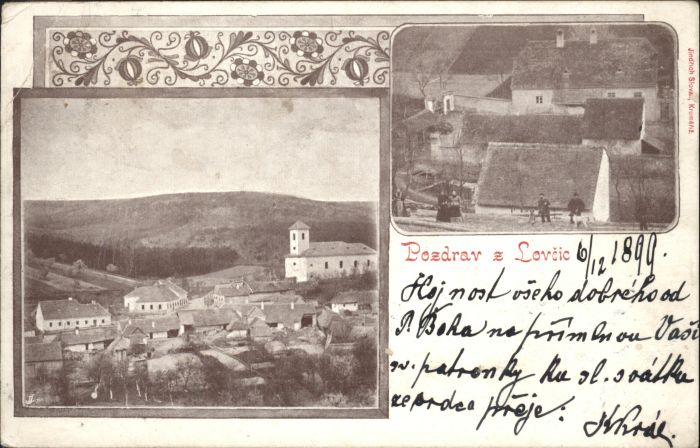 Jindřich Slovák, Kroměříž.
Pozdrav z Lovčic 6/12 1899.
Hojnost všeho dobrého od
P. Boha na přímluvu Vaší
sv. patronky ku sl. svátku
ze srdca přeje:
KKrál